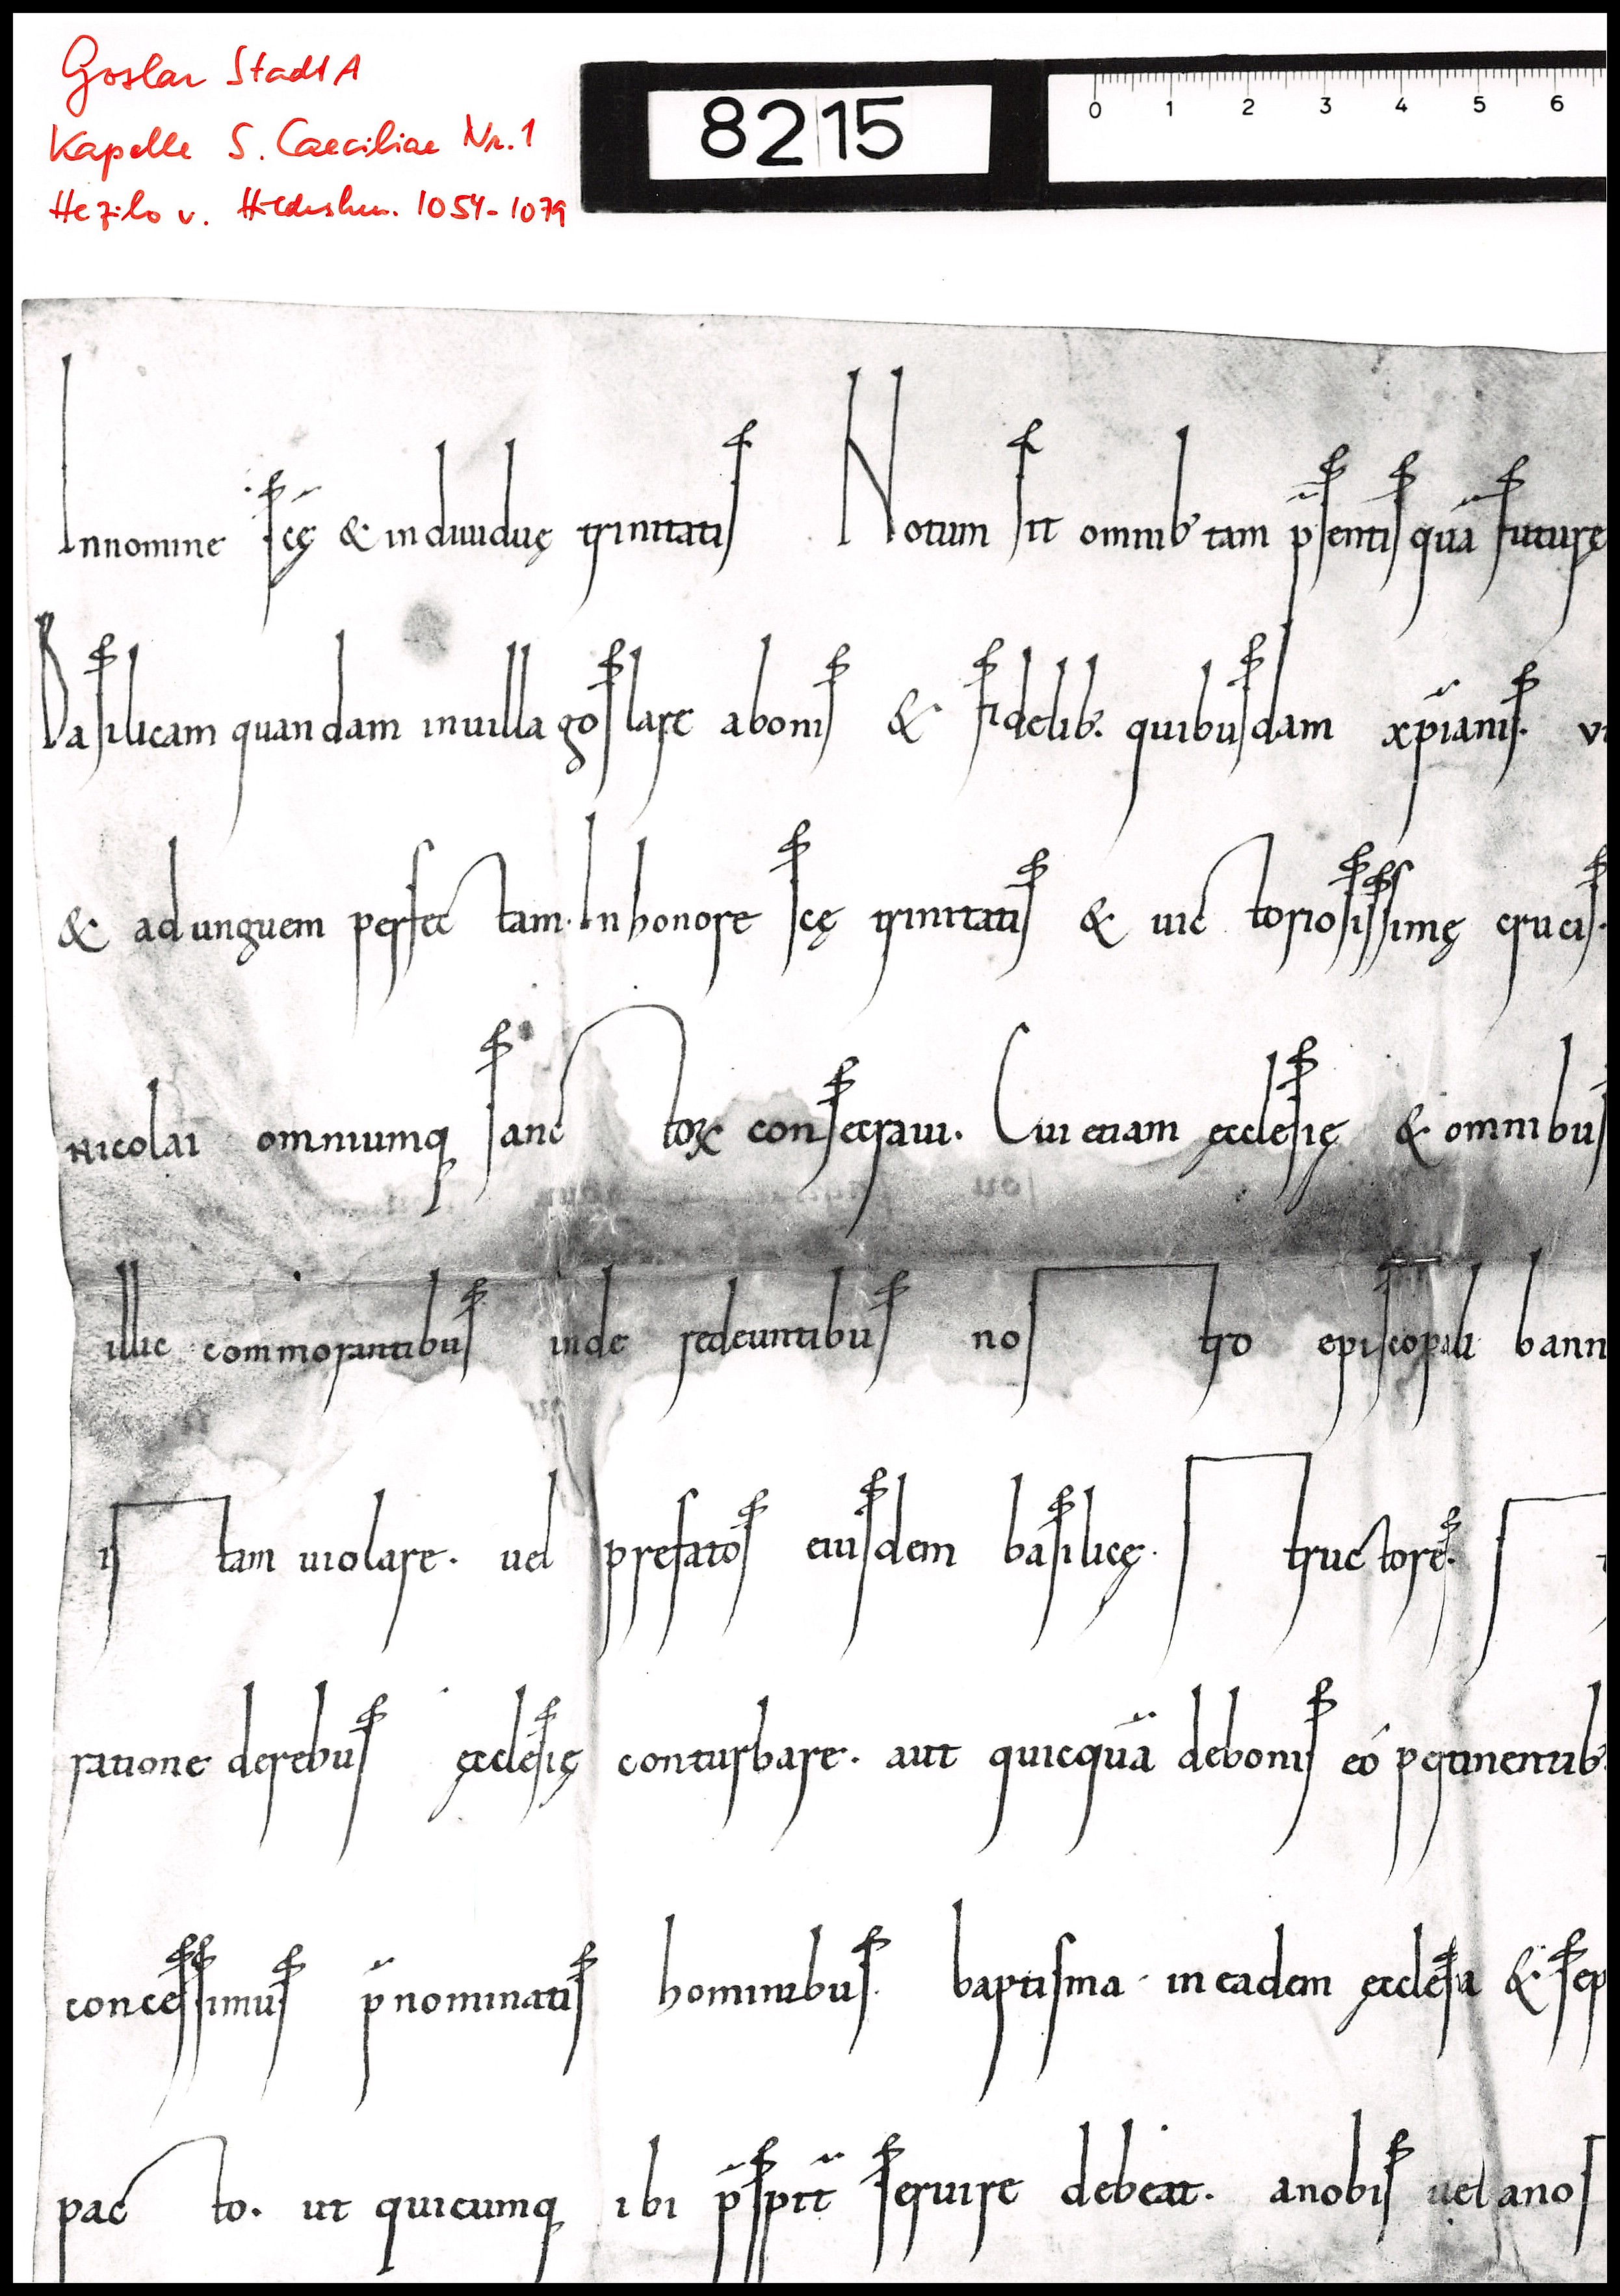 Goslar StadtA
Kapelle S. Caeciliae Nr. 1
Hezilo v. Hildeshm. 1054-1079
8215
0 1 2 3 4 5 6
Innomine scę & indiuiduę trinitatis Notum sit omnib' tam p̄sentis quā future
Basilicam quandam inuilla goslare abonis & fidelib'. quibusdam xp̄ianis.
& ad unguem perfectam. In honore scę trinitatis & uictoriosissimę crucis.
Nicolai omniumq; sanctoꝝ consecraui. Cui etiam ęcclesię & omnibus
illic commorantibus inde redeuntibus nostro episcopali bann
istam uiolare. uel prefatos eiusdem basilicę. structores.
ratione derebus ęcclesię conturbare. aut quicquā debonis eó ptinentib'.
concessimus p̄nominatis hominibus. baptisma in eadem ęcclesia & sep
pacto. ut quicumq; ibi p̄sp̄it̄ seruire debeat. anobis uel anos